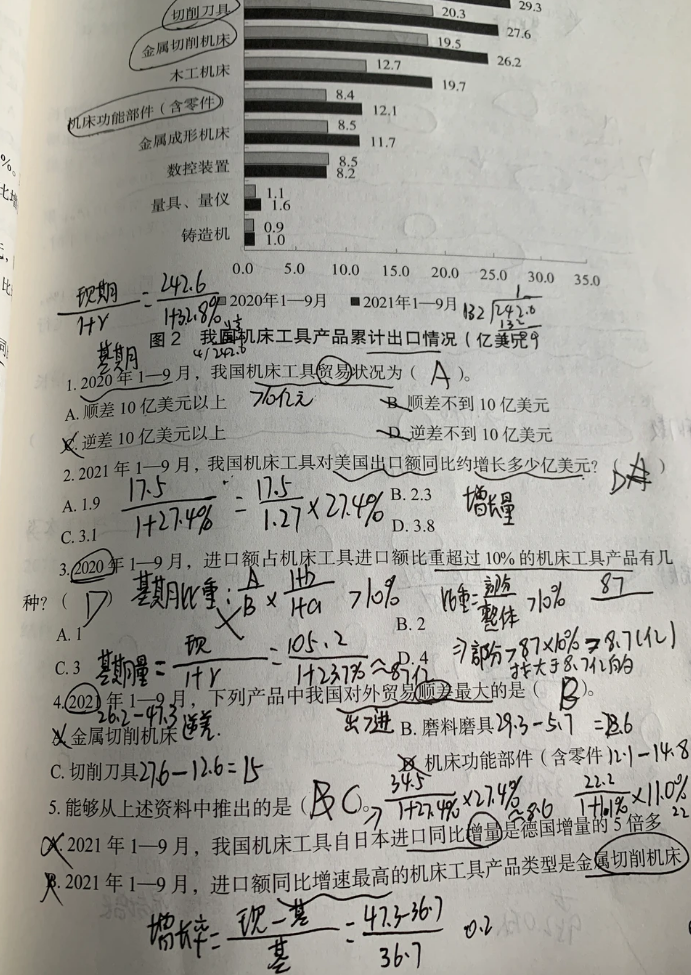 29.3
切削刀具
20.3
27.6
金属切削机床
19.5
26.2
木工机床
12.7
19.7
机床功能部件（含零件）
8.4
12.1
金属成形机床
8.5
11.7
数控装置
8.5
8.2
量具、量仪
1.1
1.6
铸造机
0.9
1.0
0.0 5.0 10.0 15.0 20.0 25.0 30.0 35.0
现期/1+r = 242.6/1+32.8%
2020年1—9月 2021年1—9月
图2 我国机床工具产品累计出口情况（亿美元）
基期
1. 2020年1—9月，我国机床工具贸易状况为（ A ）。
A. 顺差10亿美元以上 >10亿元 B. 顺差不到10亿美元
C. 逆差10亿美元以上 D. 逆差不到10亿美元
2. 2021年1—9月，我国机床工具对美国出口额同比约增长多少亿美元？（ ）
A. 1.9 B. 2.3
17.5/1+27.4% = 17.5/1.27 ×27.4% 增长量
C. 3.1 D. 3.8
3. 2020年1—9月，进口额占机床工具进口额比重超过10%的机床工具产品有几
种？（ D ） 基期比重：A/B × 1+b/1+a >10% 比重=部分/整体 >10% 87
A. 1 B. 2
⇒部分>87×10% ⇒8.7(亿)
C. 3 D. 4
基期量=现/1+r = 105.2/1+23.7% ≈87亿 找大于8.7亿的
4. 2021年1—9月，下列产品中我国对外贸易顺差最大的是（ B ）。
26.2-47.3
A. 金属切削机床 逆差 出>进 B. 磨料磨具 29.3-5.7 =23.6
C. 切削刀具 27.6-12.6=15 D. 机床功能部件（含零件） 12.1-14.8
5. 能够从上述资料中推出的是（ C ）。
34.5/1+27.4% ×27.4% ≈8.6 22.2 ×11.0%
A. 2021年1—9月，我国机床工具自日本进口同比增量是德国增量的5倍多
B. 2021年1—9月，进口额同比增速最高的机床工具产品类型是金属切削机床
增长率=现-基/基 = 47.3-36.7/36.7 0.2